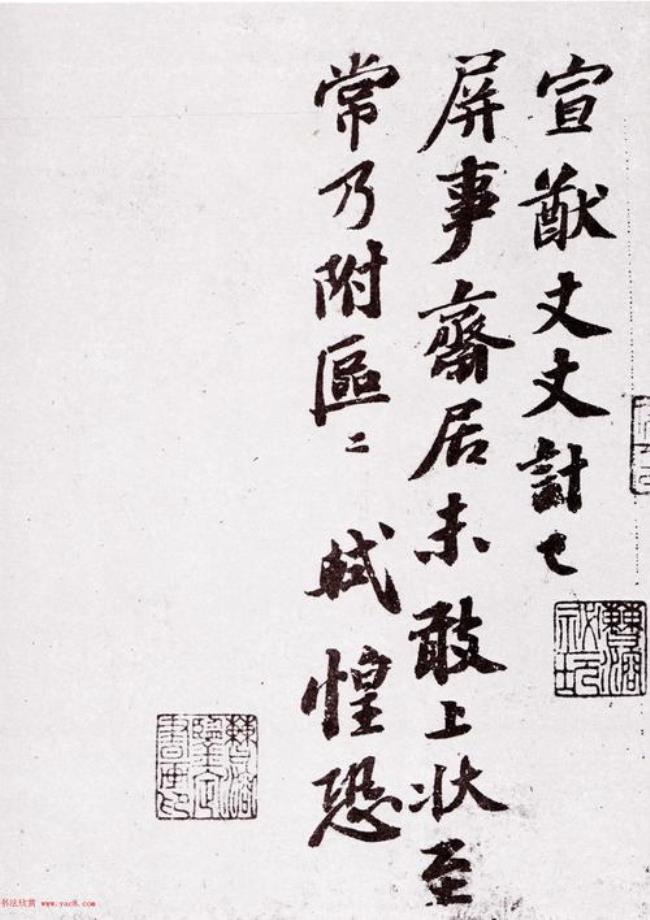 宣猷丈丈計已
屏事齋居未敢上狀至
常乃附區〻 軾惶恐
书法欣赏 www.yac8.com